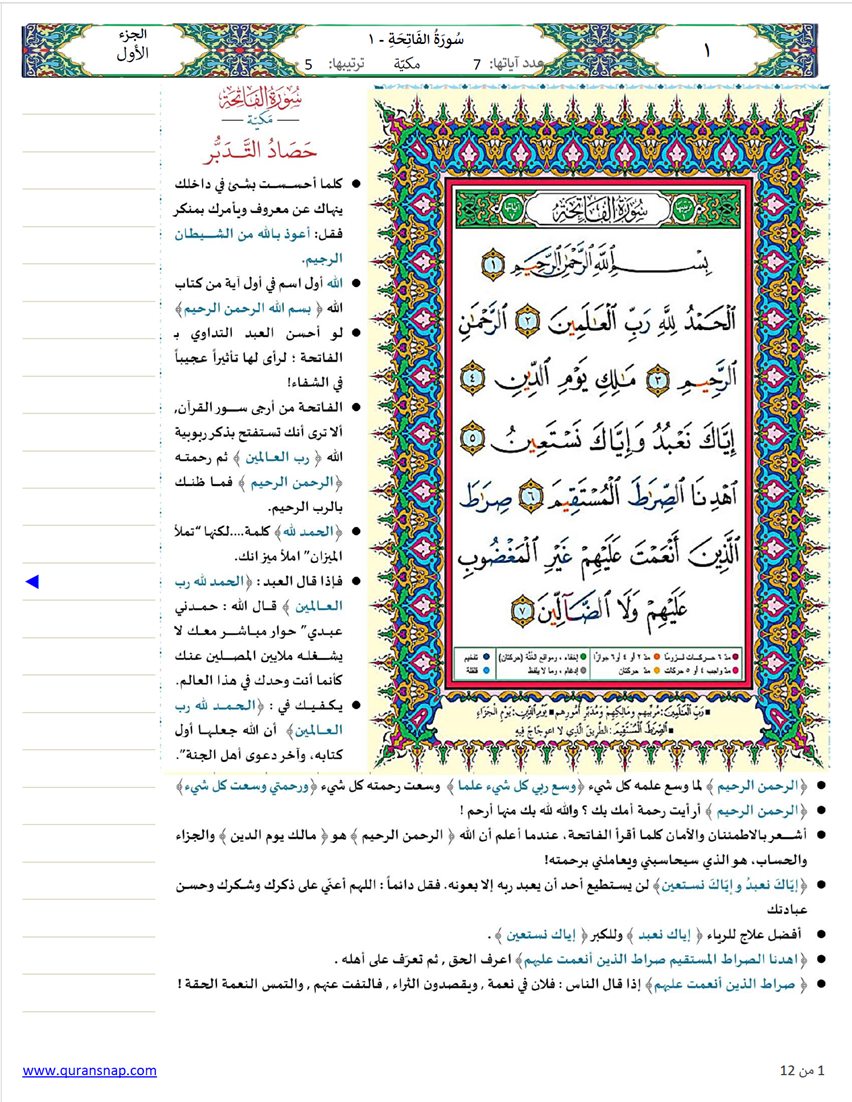 ١
سُورَةُ الفَاتِحَةِ - ١
عدد آياتها: 7 مكيّة ترتيبها: 5
الجزء
الأول
سُورَةُ الفَاتِحَةِ
بِسْمِ اللَّهِ الرَّحْمَٰنِ الرَّحِيمِ ١
الْحَمْدُ لِلَّهِ رَبِّ الْعَالَمِينَ ٢ الرَّحْمَٰنِ
الرَّحِيمِ ٣ مَالِكِ يَوْمِ الدِّينِ ٤
إِيَّاكَ نَعْبُدُ وَإِيَّاكَ نَسْتَعِينُ ٥
اهْدِنَا الصِّرَاطَ الْمُسْتَقِيمَ ٦ صِرَاطَ
الَّذِينَ أَنْعَمْتَ عَلَيْهِمْ غَيْرِ الْمَغْضُوبِ
عَلَيْهِمْ وَلَا الضَّالِّينَ ٧
مدّ ٦ حركات لزومًا مدّ ٢ أو ٤ أو ٦ جوازًا إخفاء، ومواقع الغُنَّة (حركتان) تفخيم
مدّ واجب ٤ أو ٥ حركات مدّ حركتان إدغام، وما لا يلفظ قلقلة
رَبِّ الْعَالَمِينَ: مُرَبِّيهِم وَمَالِكِهِم وَمُدَبِّرِ أُمُورِهِم يَوْمِ الدِّينِ: يَوْمِ الجَزَاءِ
الصِّرَاطَ الْمُسْتَقِيمَ: الطَّرِيقَ الَّذِي لا اعوِجَاجَ فِيهِ
سُورَةُ الفَاتِحَةِ
مَكيّة
حَصَادُ التَّدَبُّر
● كلما أحسست بشئ في داخلك
ينهاك عن معروف ويأمرك بمنكر
فقل: أعوذ بالله من الشيطان
الرجيم.
● الله أول اسم في أول آية من كتاب
الله ﴿ بسم الله الرحمن الرحيم﴾
● لو أحسن العبد التداوي بـ
الفاتحة ؛ لرأى لها تأثيراً عجيباً
في الشفاء!
● الفاتحة من أرجى سور القرآن,
ألا ترى أنك تستفتح بذكر ربوبية
الله ﴿ رب العالمين ﴾ ثم رحمته
﴿الرحمن الرحيم ﴾ فما ظنك
بالرب الرحيم.
● ﴿الحمد لله﴾ كلمة....لكنها "تملأ
الميزان" املأ ميزانك.
● فإذا قال العبد : ﴿الحمد لله رب
العالمين ﴾ قال الله : حمدني
عبدي" حوار مباشر معك لا
يشغله ملايين المصلين عنك
كأنما أنت وحدك في هذا العالم.
● يكفيك في : ﴿الحمد لله رب
العالمين﴾ أن الله جعلها أول
كتابه، وآخر دعوى أهل الجنة".
● ﴿الرحمن الرحيم ﴾ لما وسع علمه كل شيء ﴿وسع ربي كل شيء علما ﴾ وسعت رحمته كل شيء ﴿ورحمتي وسعت كل شيء﴾
● ﴿الرحمن الرحيم ﴾ أرأيت رحمة أمك بك ؟ والله لله بك منها أرحم !
● أشعر بالاطمئنان والأمان كلما أقرأ الفاتحة، عندما أعلم أن الله ﴿ الرحمن الرحيم ﴾ هو ﴿ مالك يوم الدين ﴾ والجزاء
والحساب، هو الذي سيحاسبني ويعاملني برحمته!
● ﴿إيّاكَ نعبدُ وإيّاكَ نستعين﴾ لن يستطيع أحد أن يعبد ربه إلا بعونه. فقل دائماً : اللهم أعنّي على ذكرك وشكرك وحسن
عبادتك
● أفضل علاج للرياء ﴿ إياك نعبد ﴾ وللكبر ﴿ إياك نستعين ﴾ .
● ﴿اهدنا الصراط المستقيم صراط الذين أنعمت عليهم﴾ اعرف الحق , ثم تعرّف على أهله .
● ﴿ صراط الذين أنعمت عليهم﴾ إذا قال الناس : فلان في نعمة , ويقصدون الثراء , فالتفت عنهم , والتمس النعمة الحقة !
1 من 12
www.quransnap.com